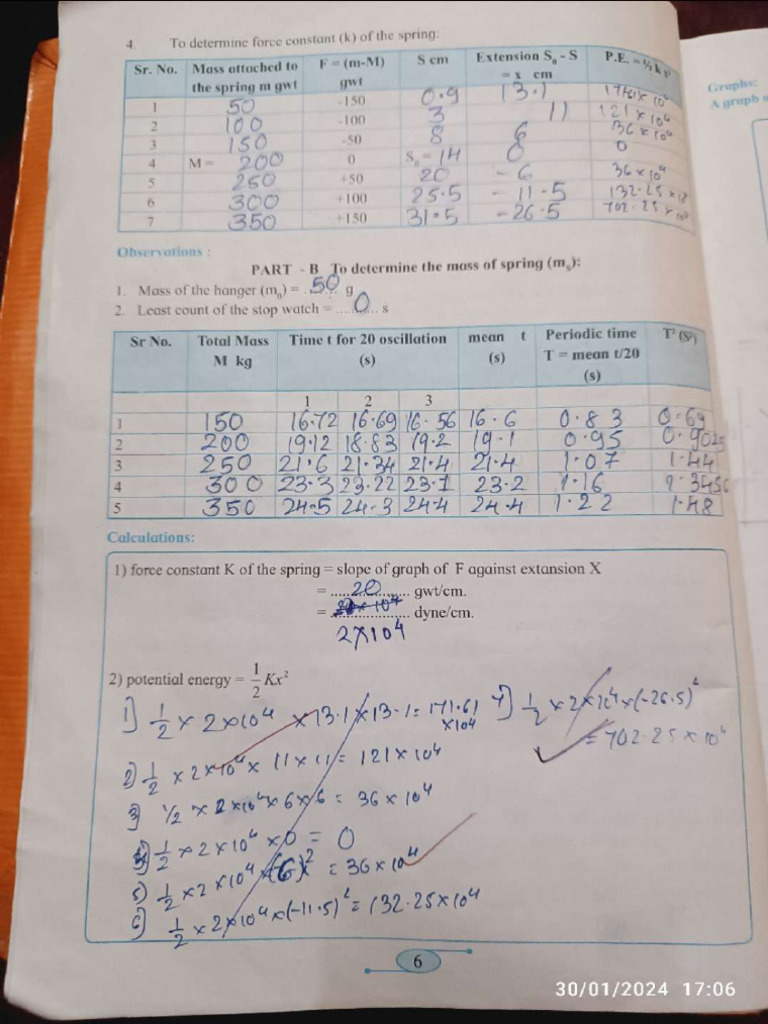 4. To determine force constant (k) of the spring:
Sr. No. Mass attached to the spring m gwt F = (m-M) gwt S cm Extension S₀ - S = x cm P.E. = ½ k x²
1 50 -150 0.9 13.1
2 100 -100 3 11 121 x 10⁴
3 150 -50 8 6 36 x 10⁴
4 M = 200 0 S₀ = 14 0 0
5 250 +50 20 - 6 36 x 10⁴
6 300 +100 25.5 - 11.5 132.25 x
7 350 +150 31.5 - 26.5 702.25 x 10⁴
Graphs:
A graph
Observations :
PART - B To determine the mass of spring (mₛ):
1. Mass of the hanger (m₀) = .50.... g
2. Least count of the stop watch = ....0.... s
Sr No. Total Mass M kg Time t for 20 oscillation (s) mean t (s) Periodic time T = mean t/20 (s) T² (S²)
1 2 3
1 150 16.72 16.69 16.56 16.6 0.83 0.69
2 200 19.12 18.83 19.2 19.1 0.95 0.9025
3 250 21.6 21.34 21.4 21.4 1.07 1.44
4 300 23.3 23.22 23.1 23.2 1.16 1.3456
5 350 24.5 24.3 24.4 24.4 1.22 1.48
Calculations:
1) force constant K of the spring = slope of graph of F against extansion X
= .....20........ gwt/cm.
= .................. dyne/cm.
2x10⁴
2) potential energy = 1/2 Kx²
1) 1/2 x 2x10⁴ x 13.1 x 13.1 = 171.61 x10⁴
7) 1/2 x 2x10⁴ x (-26.5)²
= 702.25 x 10⁴
2) 1/2 x 2x10⁴ x 11 x 11 = 121 x 10⁴
3) 1/2 x 2x10⁴ x 6 x 6 = 36 x 10⁴
4) 1/2 x 2x10⁴ x 0 = 0
5) 1/2 x 2x10⁴ x (-6)² = 36 x 10⁴
6) 1/2 x 2x10⁴ x (-11.5)² = 132.25 x 10⁴
6
30/01/2024 17:06